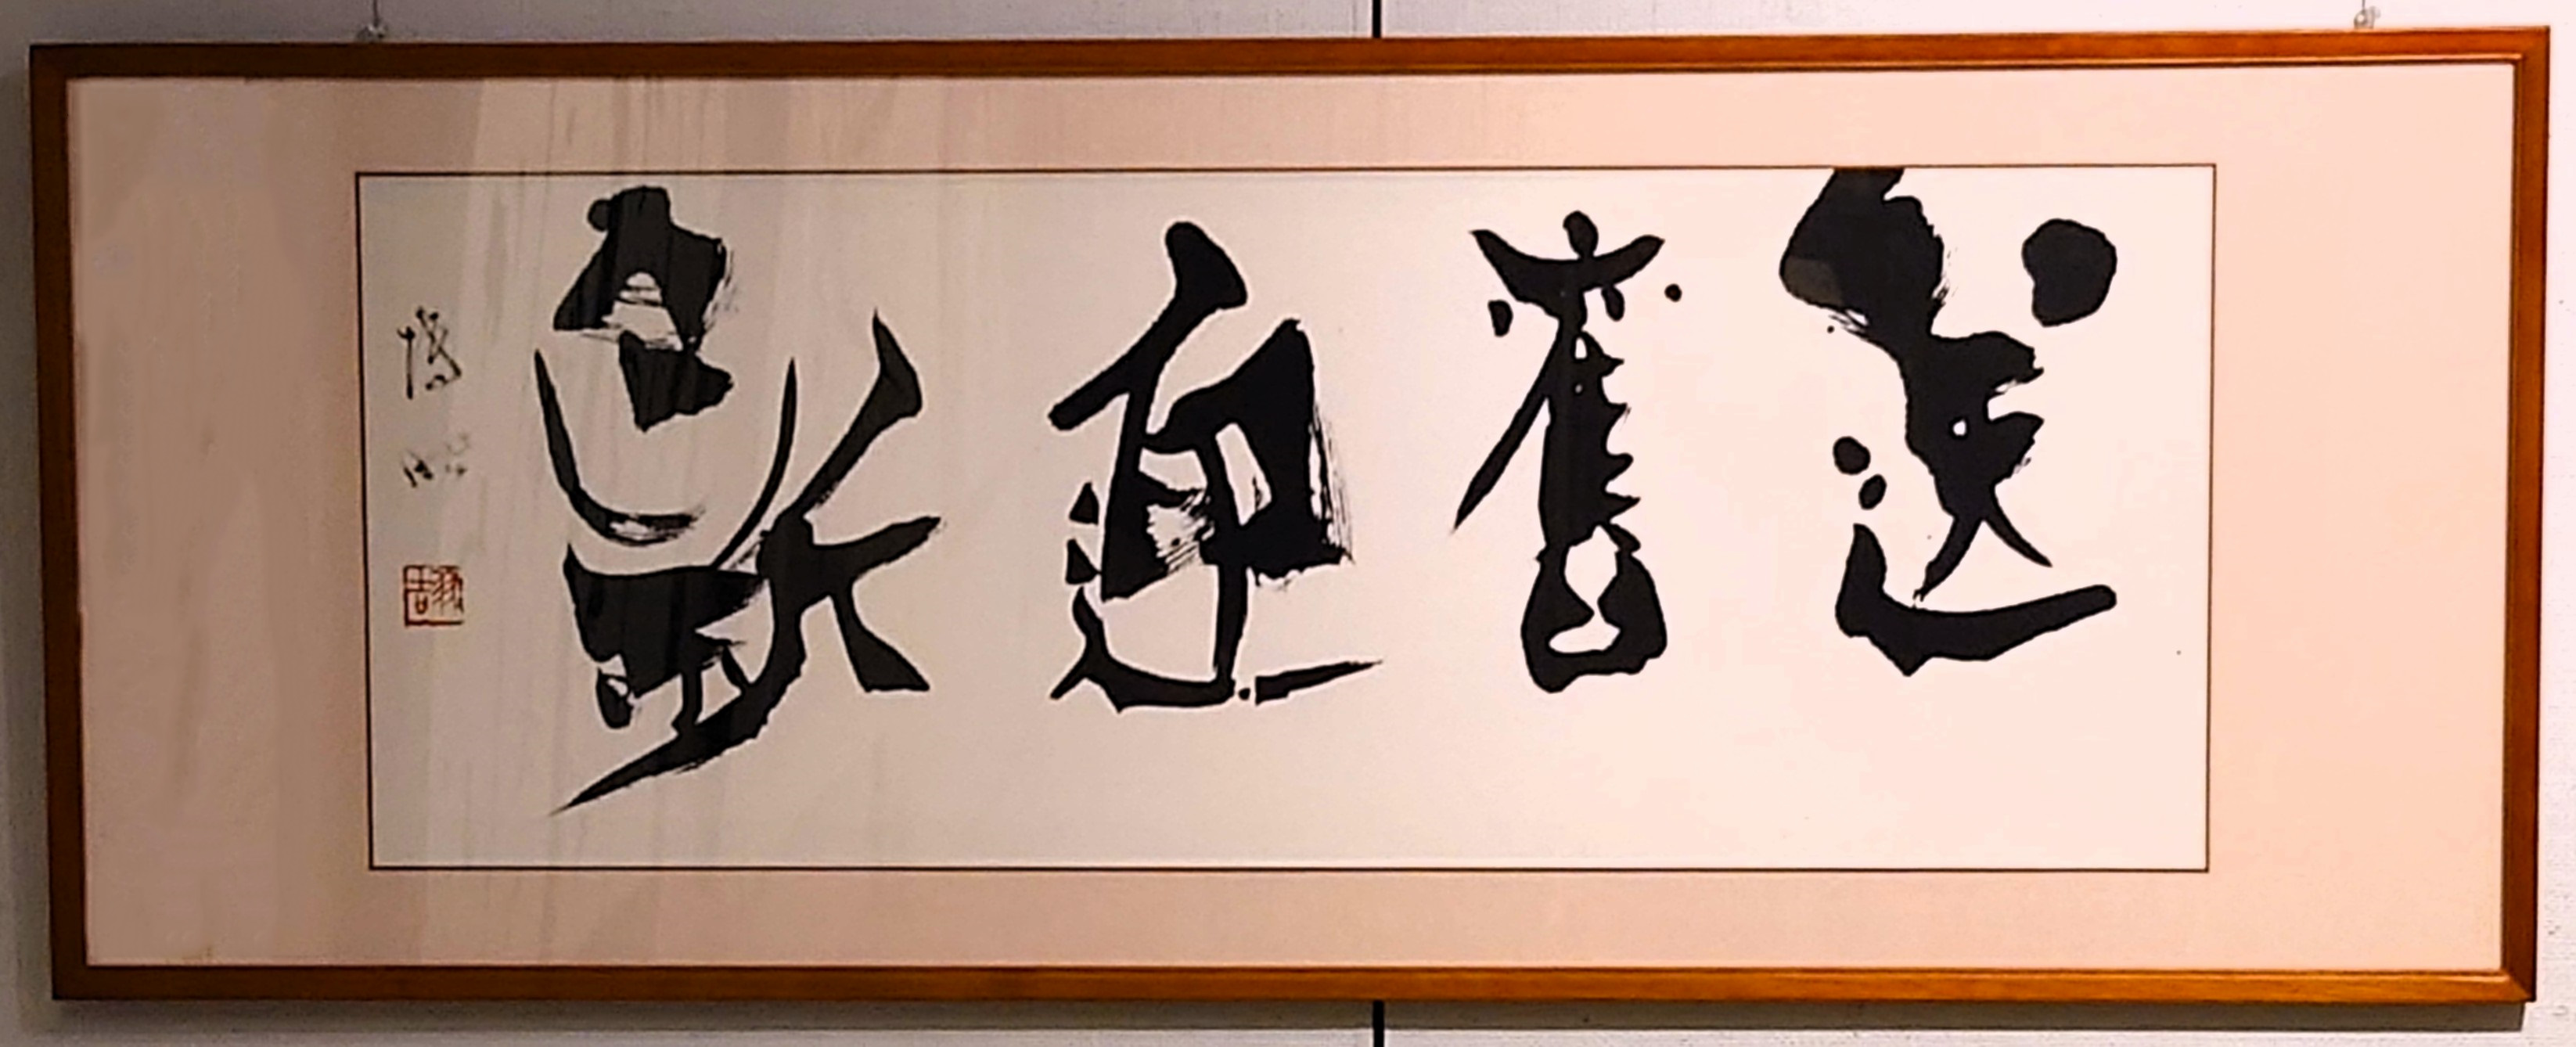 送舊迎新